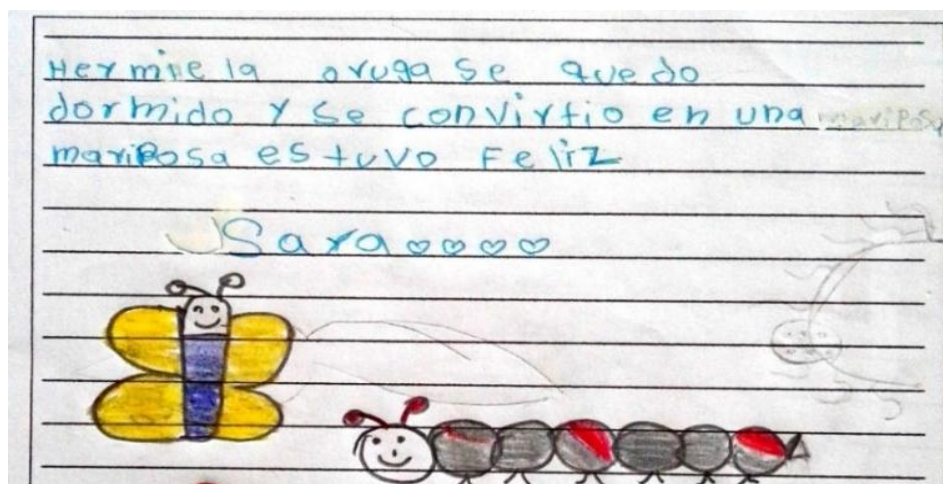 Hermine la oruga se quedo
dormido y se convirtio en una mariposa
mariposa estuvo Feliz
Sara